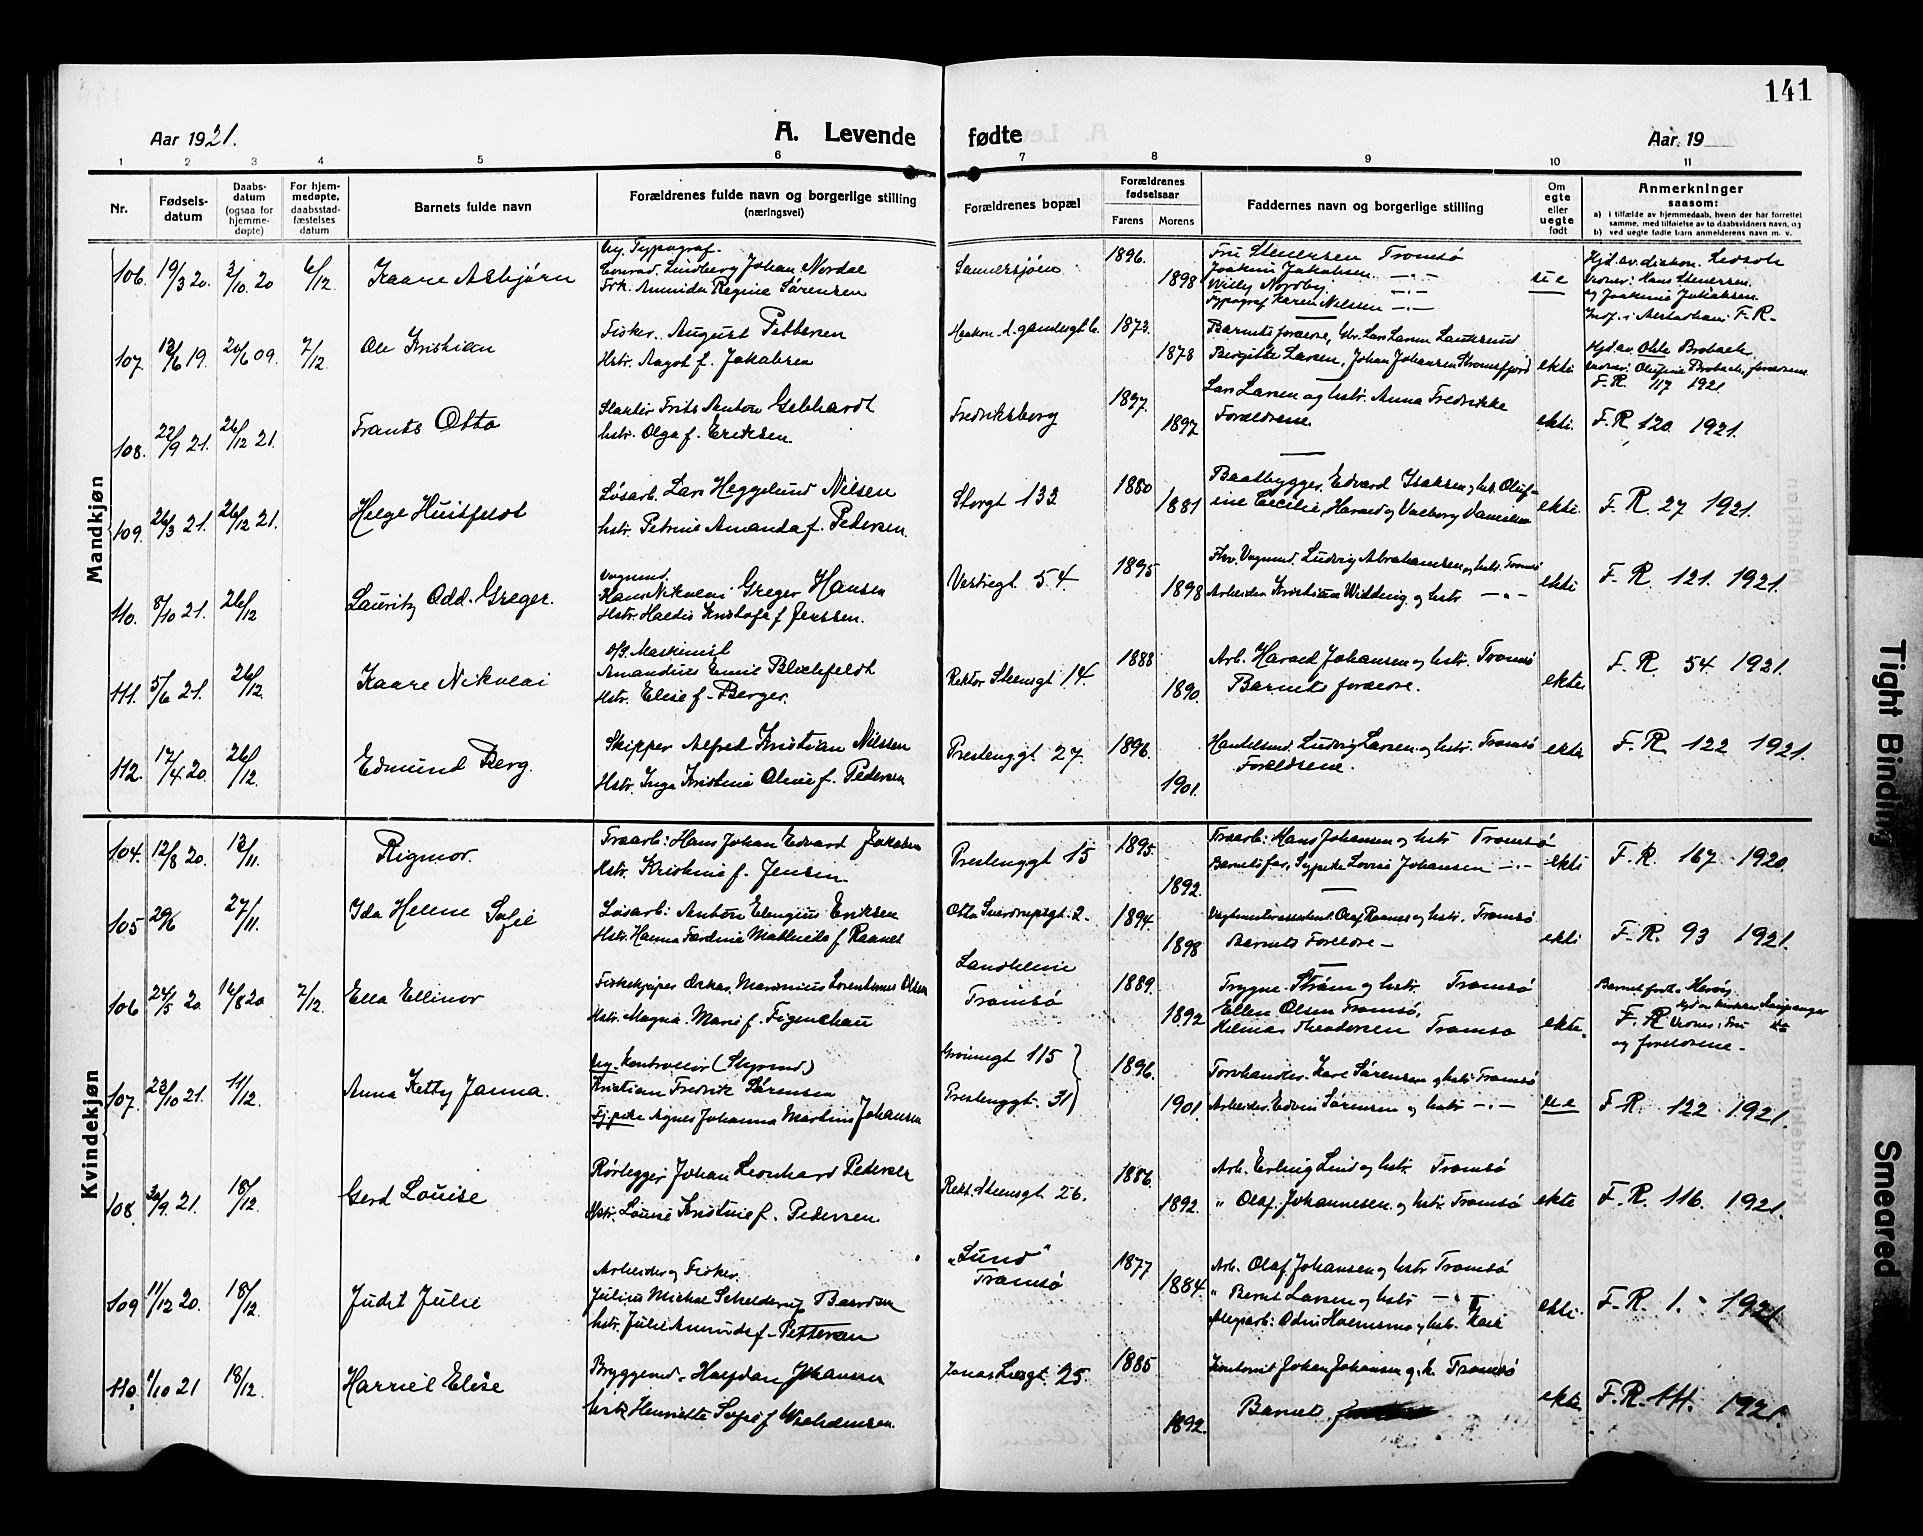 141
Aar 1921.
A. Levende fødte
Aar 19
1 2 3 4 5 6 7 8 9 10 11
Nr.
Fødsels-
datum
Daabs-
datum
(ogsaa for
hjemme-
døpte)
For hjem-
medøpte,
daabsstad-
fæstelses
datum
Barnets fulde navn
Forældrenes fulde navn og borgerlige stilling
(næringsvei)
Forældrenes bopæl
Forældrenes
fødselsaar
Farens Morens
Faddernes navn og borgerlige stilling
Om
egte
eller
uegte
født
Anmerkninger
saasom:
a) i tilfælde av hjemmedaab, hvem der har forrettet
samme, med tilføielse av to daabsvidners navn, og
b) ved uegte fødte barn anmelderens navn m. v.
Mandkjøn
106. 19/3 20. 3/10 20 6/12 Kaare Asbjørn
Ug. Typograf.
Conrad Lindberg Johan Nordal
Frk. Annida Regine Sørensen
1896. 1898
Fru Stenersen Tromsø
Joakim Jakobsen — " —
Willy Nordby — " —
Typograf Karen Nilssen — " —
u e
107. 13/6 19. 20/6 09. 7/12 Ole Kristian
Fisker. August Pettersen
Hstr. Aagot f. Jakobsen
1873. 1878
Birgitte Larsen, Johan Johansen
ekte
F. R. 117 1921
108. 22/9 21. 26/12 21. Frants Otto
Slakter Frits Anton Gebhardt
hstr. Olga f. Eriksen.
Fredriksborg
1897. 1897
Lars Larsen og hstr. Anna Fredrikke
Forældrene.
ekte.
F. R 120 1921.
109. 26/3 21. 26/12 21. Helge Huitfeldt
Løsarb. Lars Heggelund Nilsen
hstr. Petrine Amanda f. Pedersen.
Storgt 133
1880 1881
Baatbygger Edvard Isaksen og hst. Oluf-
ine Cecilie, Harald og Valborg Danielsen
ekte.
F. R. 27 1921.
110. 8/10 21. 26/12 Lauritz Odd. Greger.
Vognmd.
Hans Nikolai Greger Hansen
Hstr. Haldis Kristofa f Jenssen.
Vestregt 54
1895 1898
Fhv. Vognmd. Ludvig Abrahamsen og hstr. Tromsø
Arbeider Kristian Widding og hstr — " —
ekte
F. R. 121. 1921.
111. 5/6 21. 26/12. Kaare Nikolai
D/S. Maskinist
Amandus Ennie Blichfeldt
Hstr. Elise f. Berger.
Rektor Steensgt 14.
1888 1890.
Arb. Harald Johansen og hstr. Tromsø
Barnets foreldre.
ekte.
F. R. 54 1921.
112. 17/4 20. 26/12. Edmund Berg.
Skipper Alfred Kristian Nilssen
Hstr. Inga Kristine Oline f. Pedersen
Prestenggt. 27
1896. 1901.
Handelsmd. Ludvig Larsen og hstr. Tromsø
Foreldrene.
ekte
F. R. 122 1921.
Kvindekjøn
104. 12/8 20. 13/11. Rigmor.
Træarb: Hans Johan Edvard Jakobsen
Hstr. Kristine f. Jensen.
Prestenggt 15
1895. 1892.
Træarb: Hans Johansen og hstr Tromsø
Barnets far, Sypike Lovise Johansen — " —
ekte
F. R. 167 1920.
105 29/6 27/11. Ida Helene Sofie
Løsarb: Anton Elingius Eriksen
Hstr. Hanna Fredrine Mathilda f Raanes
Otto Sverdrupsgt. 2.
1894. 1898
Barnets Foreldre —
ekte
F. R. 93 1921.
106 24/5 20. 14/8 20 7/12. Ella Ellinor
Fiskekjøper Oskar Marinius Lorentinus Olsen
Hstr. Magna Marie f. Figenschau
Landheim
Tromsø
1889. 1892
Trygve Strøm og hstr. Tromsø
Ellen Olsen Tromsø,
Helmer Theodorsen Tromsø
ekte.
og foreldrene —
107. 23/10 21. 11/12. Anna Ketty Janna.
Ug. Kontrollør (Styrmd)
Kristian Fredrik Sørensen
Tjpike Agnes Johanna Martine Johansen
Grønnegt 115
Prestenggt. 31
1896. 1901
Torvhandler. Karl Sørensen og hstr Tromsø
Arbeider. Edvin Sørensen og hstr — " —
u e
F. R. 122 1921.
108. 30/9 21. 18/12. Gerd Louise
Rørlegger Johan Leonhard Pedersen
Hstr. Louise Kristine f. Pedersen.
Rekt. Steensgt. 26.
1886. 1892.
Arb. Erling Lind og hstr. Tromsø
" Olaf. Johannesen. og hstr. Tromsø
ekte
F. R. 116. 1921.
109 11/12 20. 18/12. Judit Julie
Arbeider og Fisker.
Julius Mickal Schelderup Baardsen
hstr. Julie Amunda f. Pettersen
"Lund"
Tromsø
1877 1884.
Arb. Olaf Johansen og hstr Tromsø
" Bernt Larsen og hstr — " —
ekte.
F. R. 1. - 1921
110. 1/10 21 18/12. Harriet Elise
Bryggemd. Halfdan Johansen
hstr Henriette Sofie f Wilhelmsen.
Jonas Liesgt. 25.
1885 1892.
Kontorist Johan Johansen og h. Tromsø
Barnets
ekte.
F. R. 111. 1921.
Tight Binding
Smeared